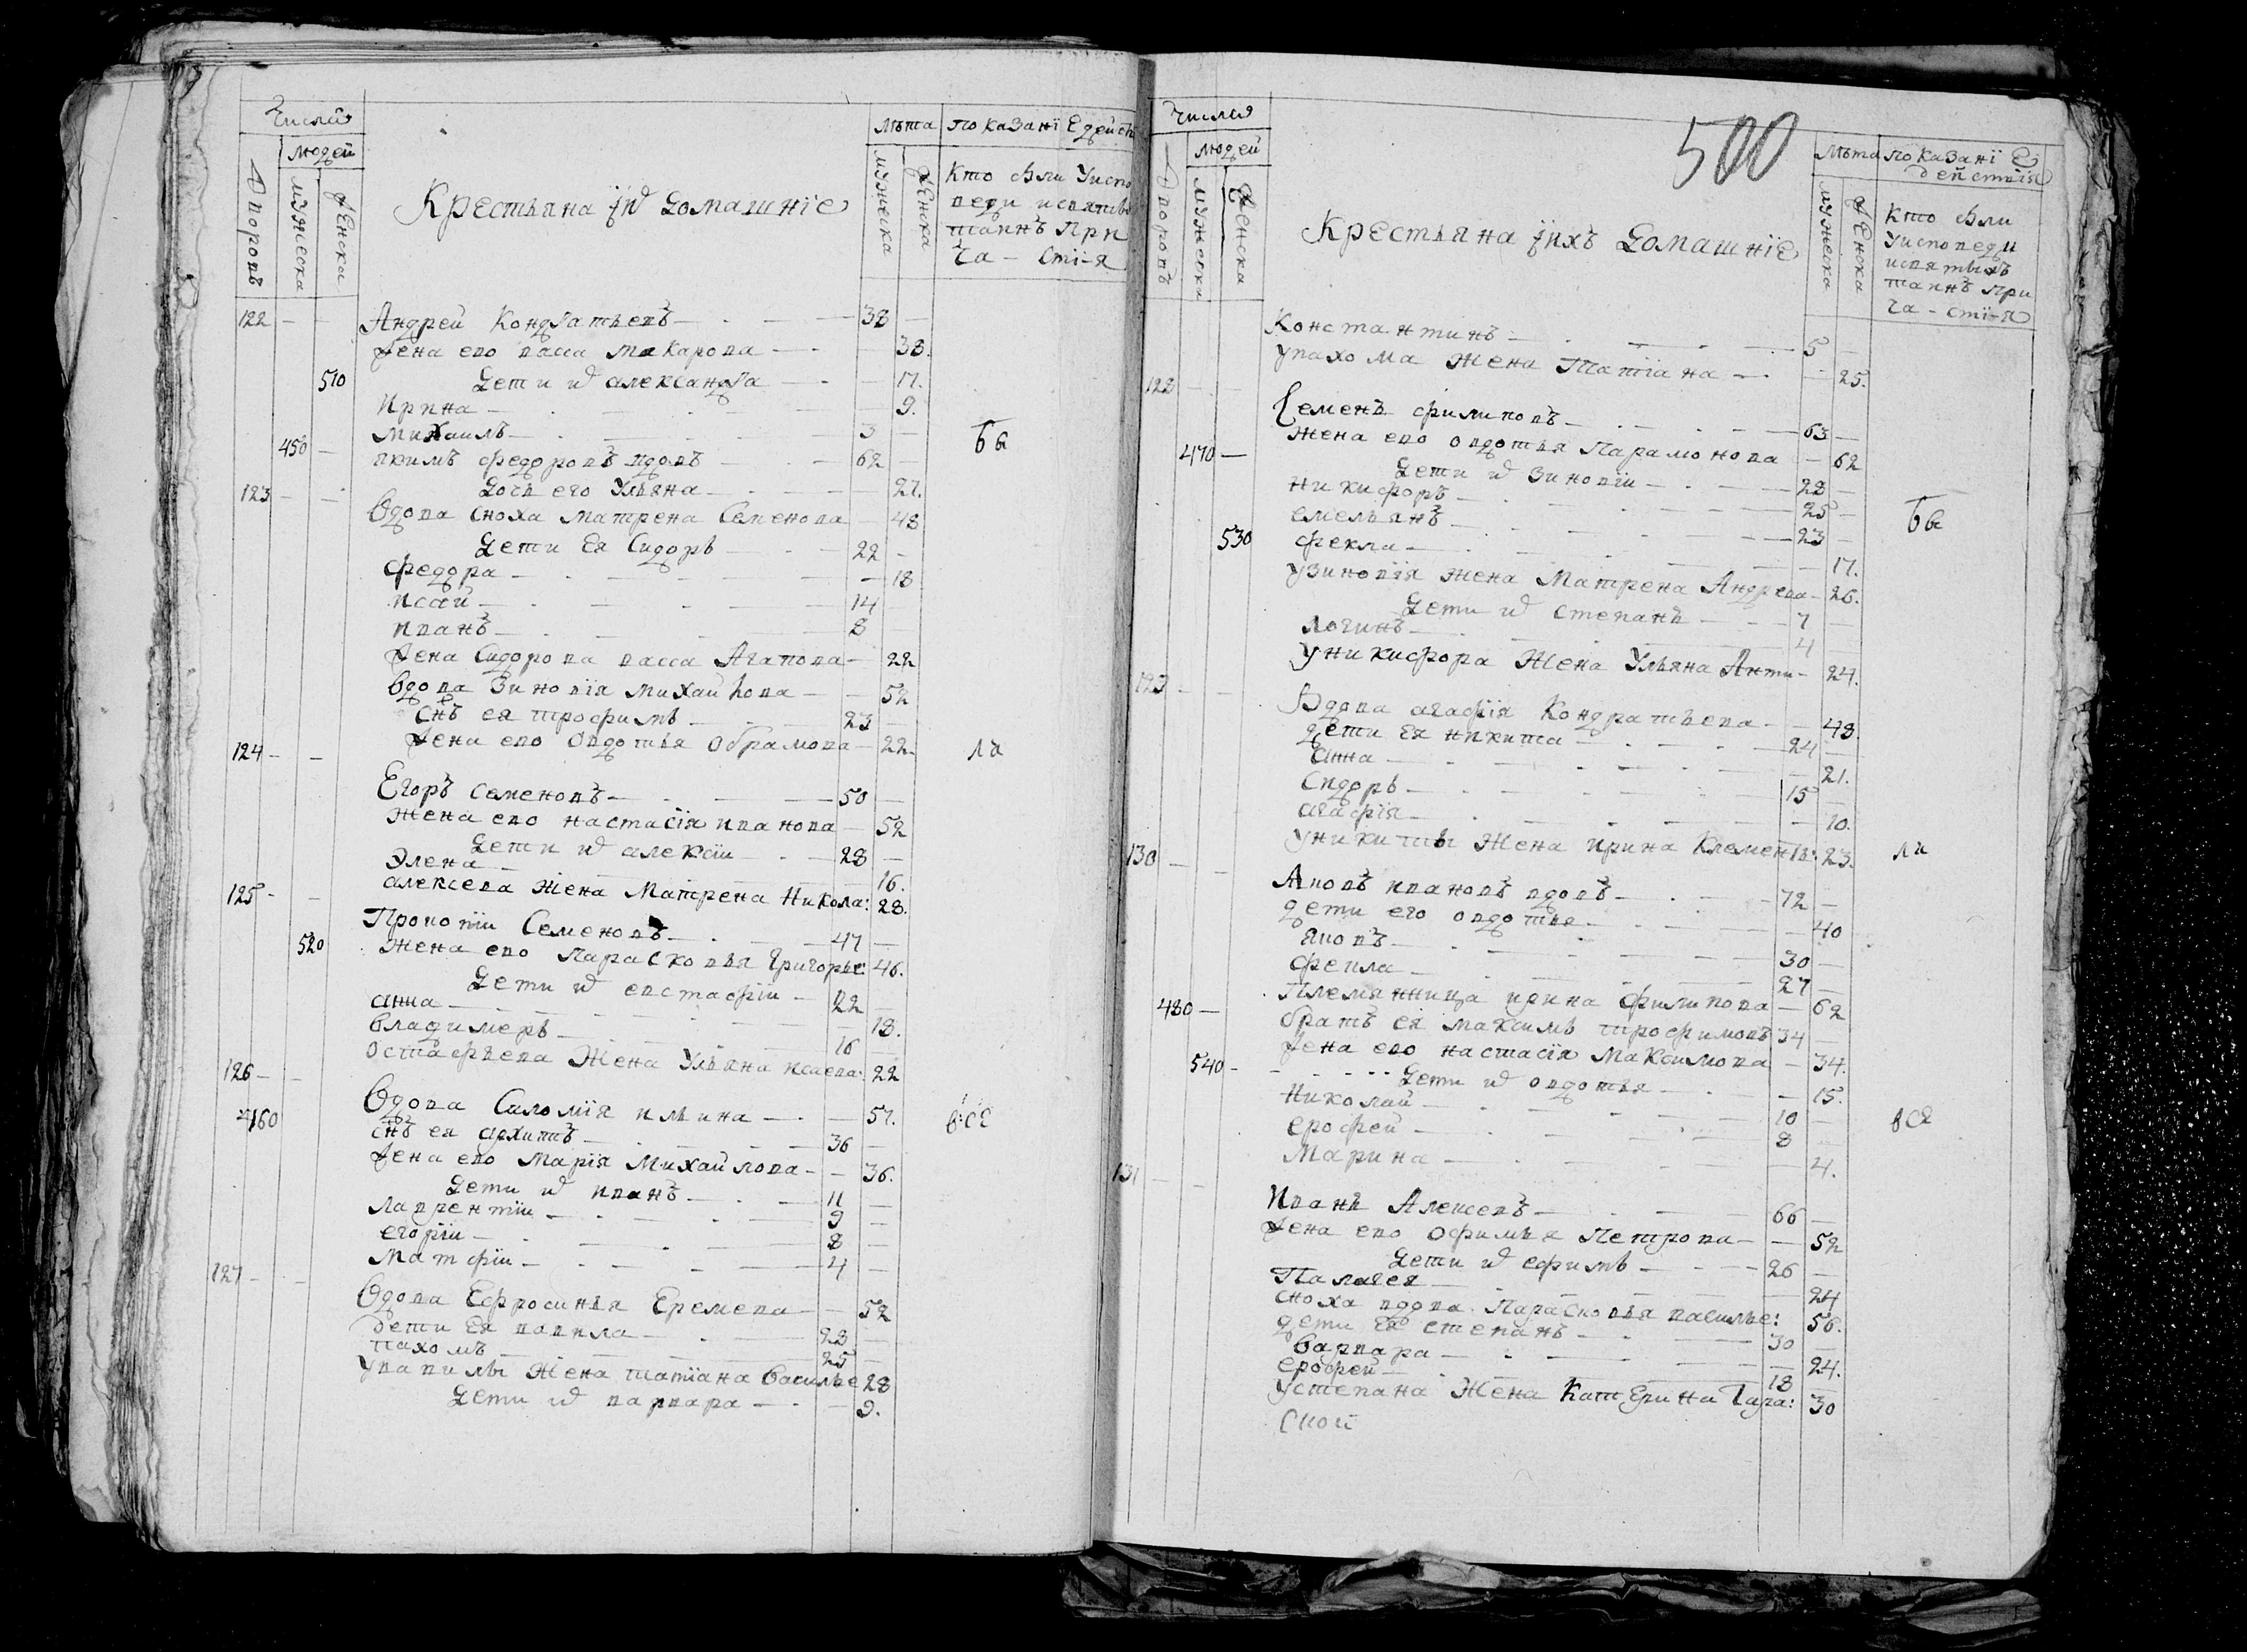 Числа
людей
Дворовъ
мужеска
женска
Крестьяна ихъ домашніе
лѣта
мужеска
женска
показані е дейст
Кто были Уиспо
веди исвятых
таинъ При
ча - сті-я
122 Андрей Кондратьевъ 38
жена ево васса макарова 38.
510 дети ихъ александра 17.
Ирина 9.
Михаилъ 3
Бы
450 якимъ федоровъ вдовъ 62
дочь его Ульяна 27.
123 Вдова сноха матрена Семенова 48
дети Ея Сидоръ 22
федора 18
исай 14
иванъ 8
жена Сидорова васса Агапова 22
Вдова Зиновія михайлова 52
снъ ея трофимъ 23
жена ево овдотья обрамова 22
124 ли
Егоръ семеновъ 50
жена ево настасія иванова 52
дети ихъ алексіи 28
Элена 16.
алексева жена Матрена Никола: 28.
125 Прокопіи Семеновъ 47
520 жена ево Парасковья Григорье: 46.
дети ихъ евстафіи 22
анна 18.
владимеръ 16
остафьева жена Ульяна исаева: 22
126 Вдова Саломія ильина 57.
460 снъ ея архипъ 36
в:се
жена ево Марія Михайлова 36.
дети ихъ иванъ 11
лаврентіи 9
егоріи 8
Матфіи 4
127 Вдова Ефросинья Еремева 52
дети Ея вавила 28
пахомъ 25
Увавилы жена татіана василье 28
дети ихъ варвара 9.
Числа
людей
Дворовъ
мужеска
женска
500
Крестьяна ихъ домашніе
лѣта
мужеска
женска
показані е
действія
Кто были
уисповеди
исвятыхъ
таинъ При
ча - сті-я
Константинъ 5
упахома жена Татіана 25.
128 Семенъ филиповъ 63
жена ево овдотья Парамонова 62
470 дети ихъ Зиновіи 28
никифоръ 25
Бы
емельянъ 23
530 фекла 17.
узиновія жена Матрена Андрева 26.
дети ихъ степанъ 7
логинъ 4
уникифора жена Ульяна Анти 24.
129 Вдова агафія Кондратьева 48.
дети Ея никита 24
анна 21.
Сидоръ 15
агафія 10.
уникиты жена ирина Клементь: 23.
130 ли
Яковъ ивановъ вдовъ 72
дети его овдотья 40
яковъ 30
фекла 27
Племянница ирина филипова 62
480 братъ ея максимъ трофимовъ 34
жена ево настасія максимова 34.
540 дети ихъ овдотья 15.
Николай 10
ерофей 8
все
Марина 4.
131 Иванъ Алексевъ 66
жена ево офимья Петрова 52
дети ихъ ефимъ 26
Палагея 24
сноха вдова Парасковья василье: 56.
дети Ея степанъ 30
варвара 24.
ерофей 18
устепана жена Катерина Тара: 30